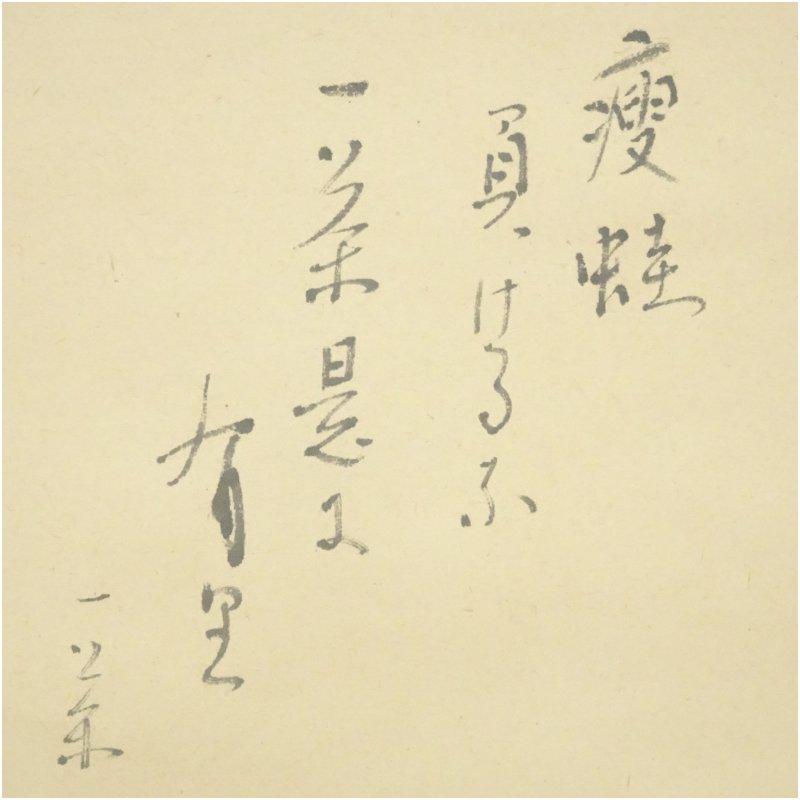 痩蛙
負けるな
一茶是に
有里
一茶